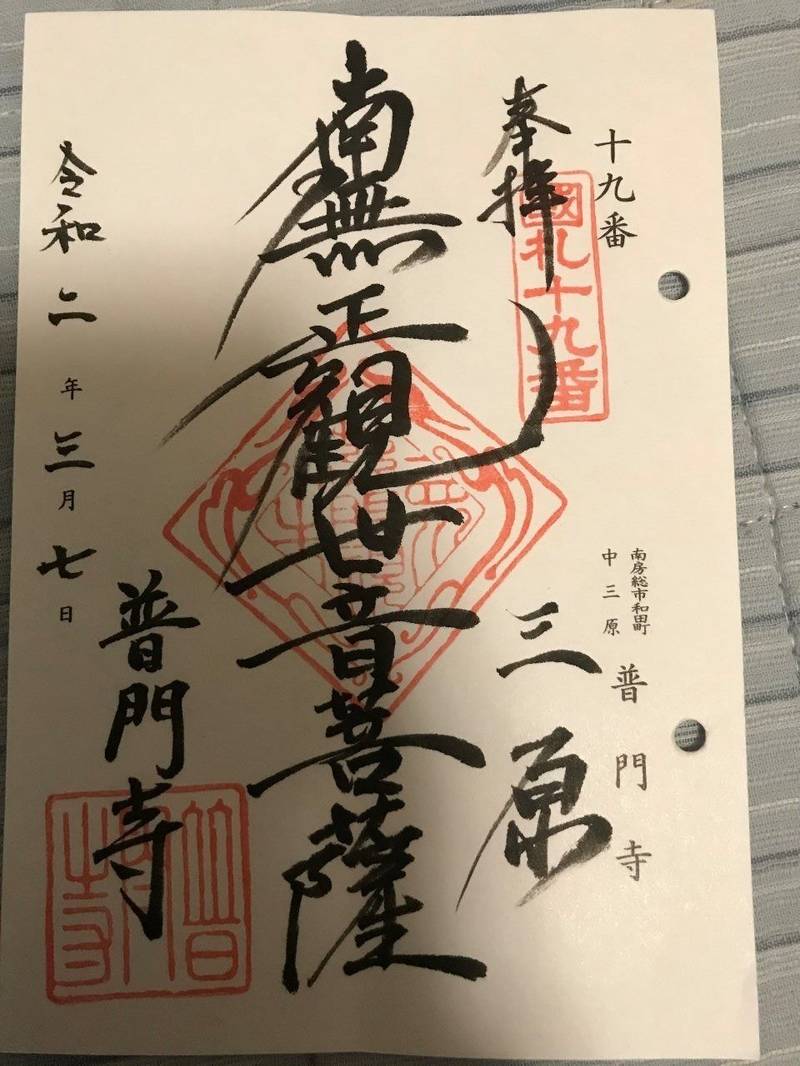 十九番
奉拝
國札十九番
南房総市和田町
中三原
普門寺
三原
南無正観世音菩薩
令和二年三月七日
普門寺
普門寺